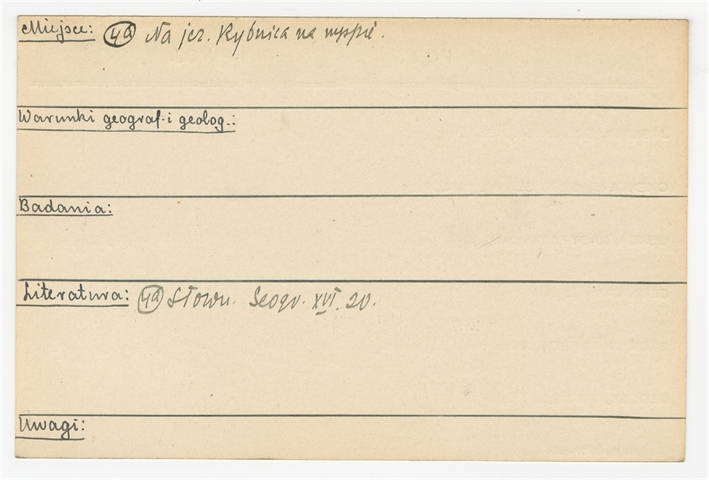 Miejsce: 4a Na jez. Rybnica na wyspie.
Warunki geograf. i geolog.:
Badania:
Literatura: 4a Słown. Geogr. XVI. 20.
Uwagi: